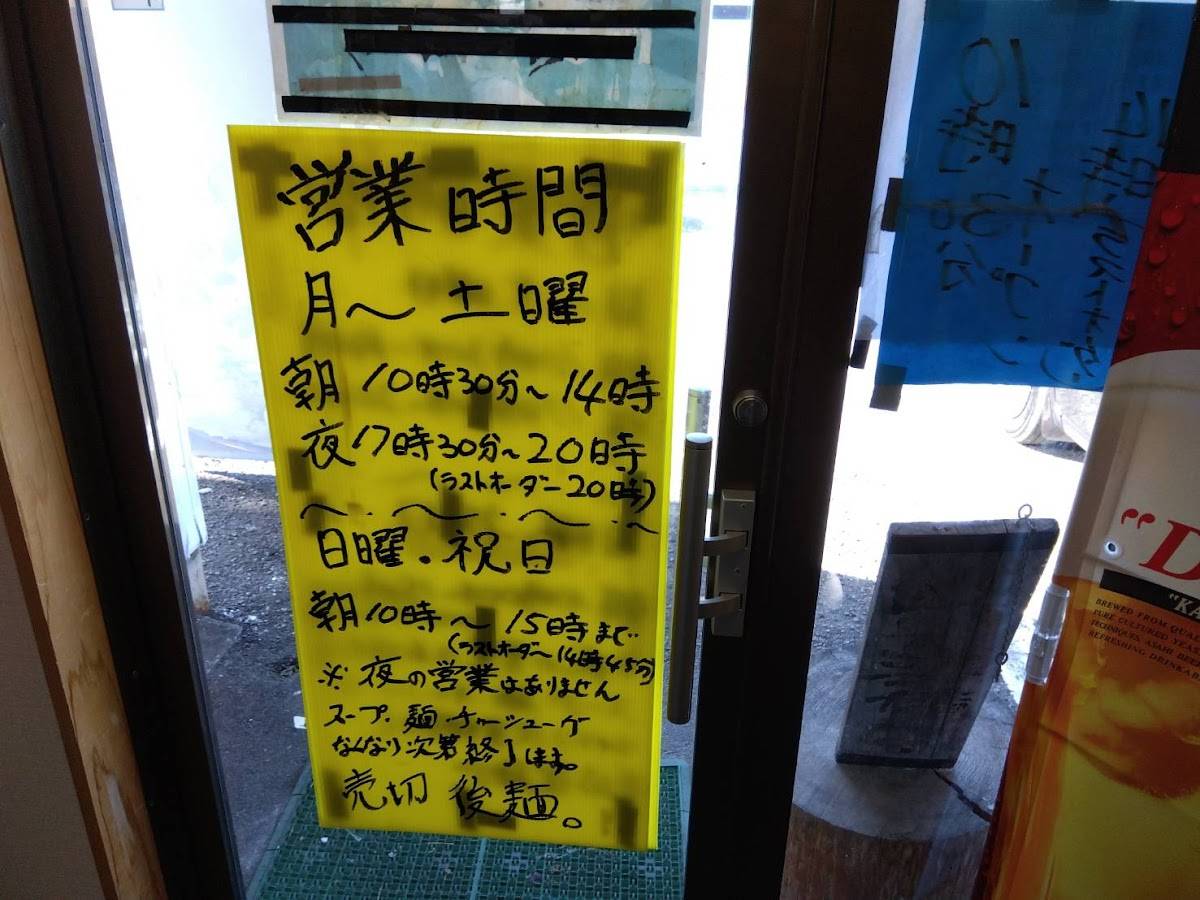 営業時間
月～土曜
朝10時30分～14時
夜17時30分～20時
(ラストオーダー20時)
日曜・祝日
朝10時～15時まで
(ラストオーダー14時45分)
※夜の営業はありません
スープ、麺、チャーシューが
なくなり次第終了します。
売切 後麺。
10時30分
オープン
"D
"K
BREWED FROM QUA
PURE CULTURED YEAS
TECHNIQUES. ASAHI BE
REFRESHING DRINKAB